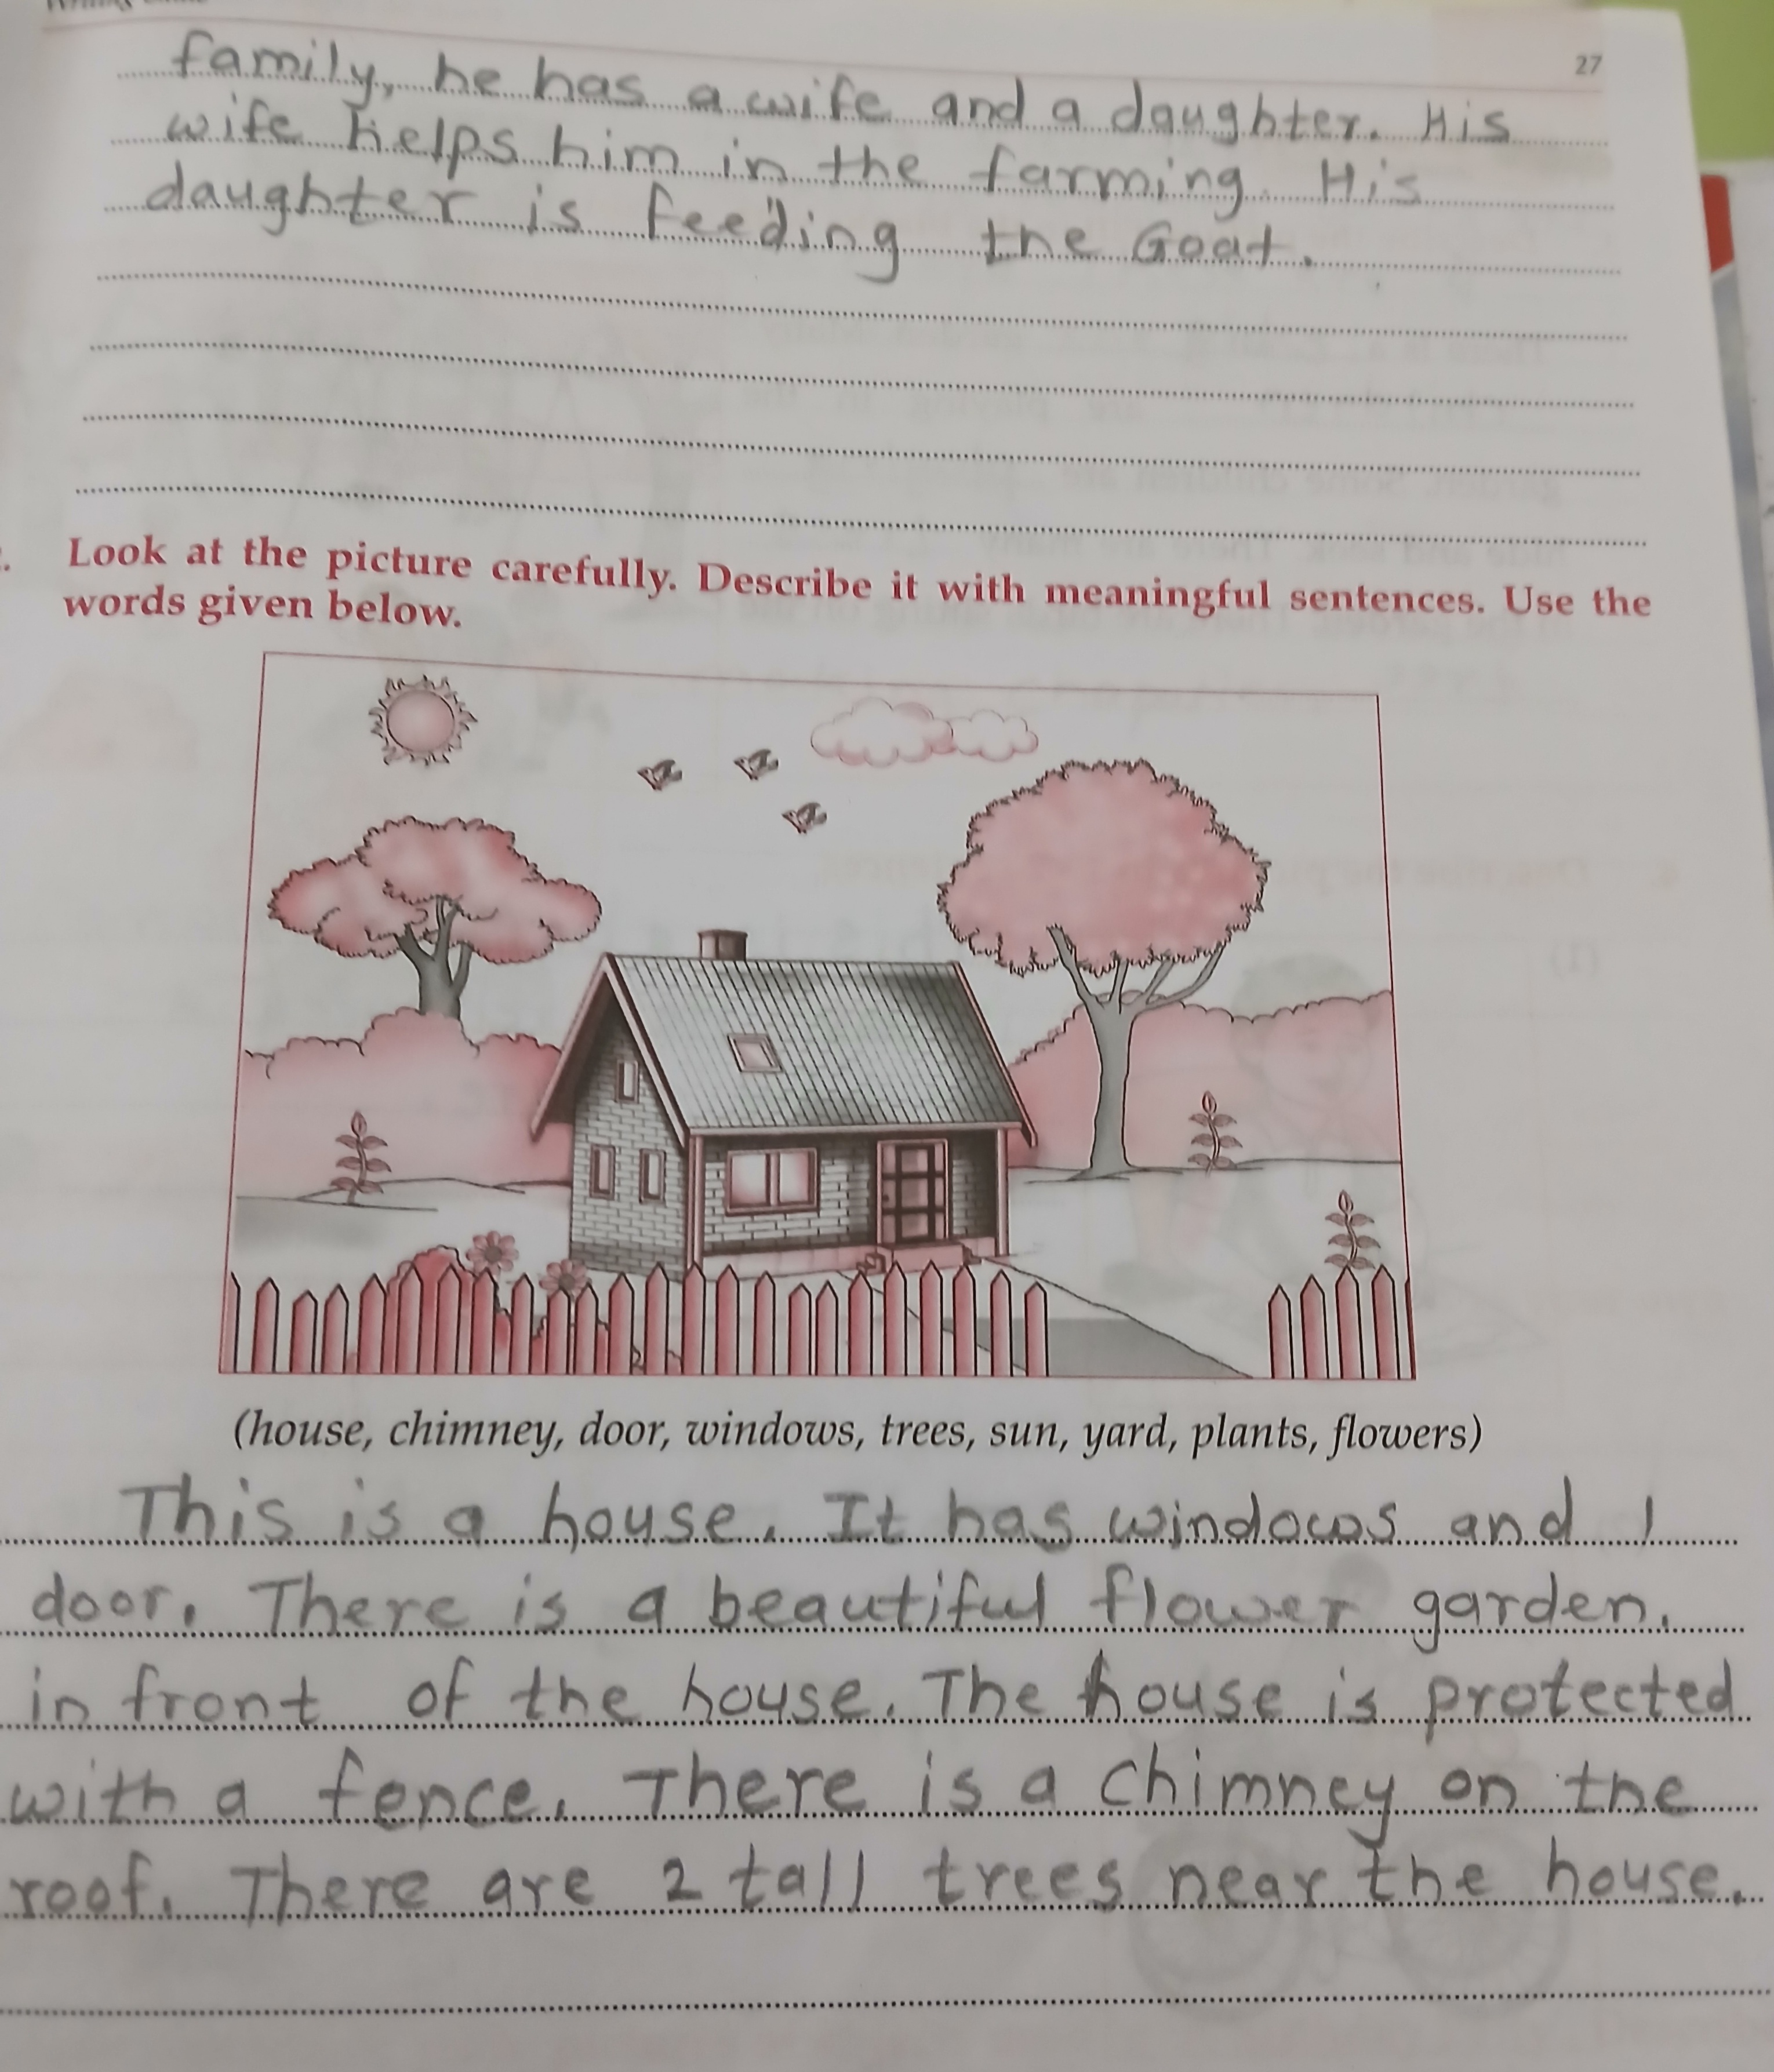 27
family, he has a wife and a daughter. His
wife helps him in the farming. His
daughter is feeding the Goat.
Look at the picture carefully. Describe it with meaningful sentences. Use the
words given below.
(house, chimney, door, windows, trees, sun, yard, plants, flowers)
This is a house. It has windows and 1
door. There is a beautiful flower garden.
in front of the house. The house is protected
with a fence. There is a chimney on the
roof. There are 2 tall trees near the house.